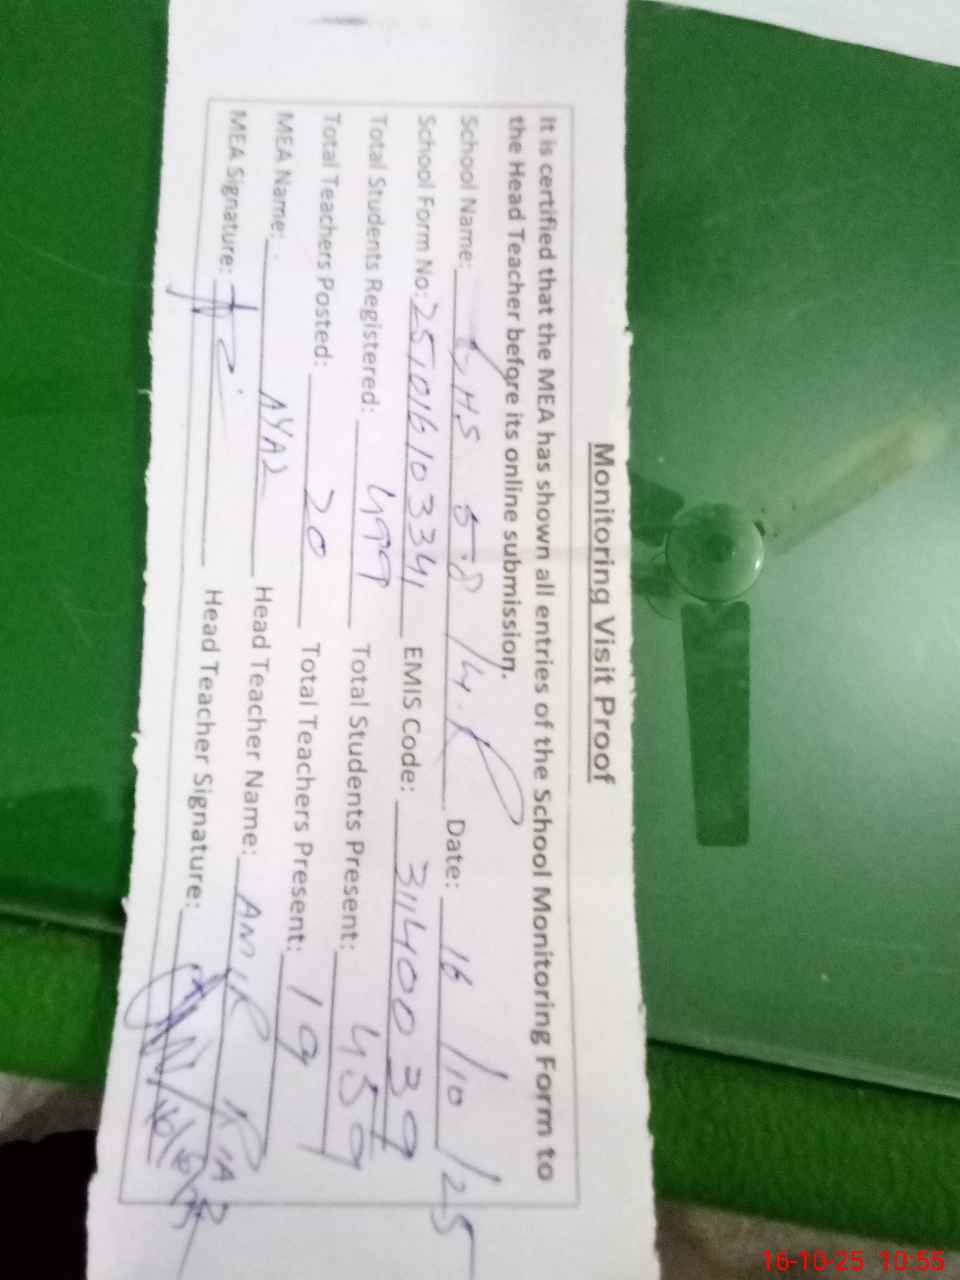 Monitoring Visit Proof
It is certified that the MEA has shown all entries of the School Monitoring Form to
the Head Teacher before its online submission.
School Name: GHS 58/4.R Date: 16/10/25
School Form No: 251016103341 EMIS Code: 31140039
Total Students Registered: 499 Total Students Present: 459
Total Teachers Posted: 20 Total Teachers Present: 19
MEA Name: Head Teacher Name: AMIR
MEA Signature: Head Teacher Signature:
16-10-25 10:55